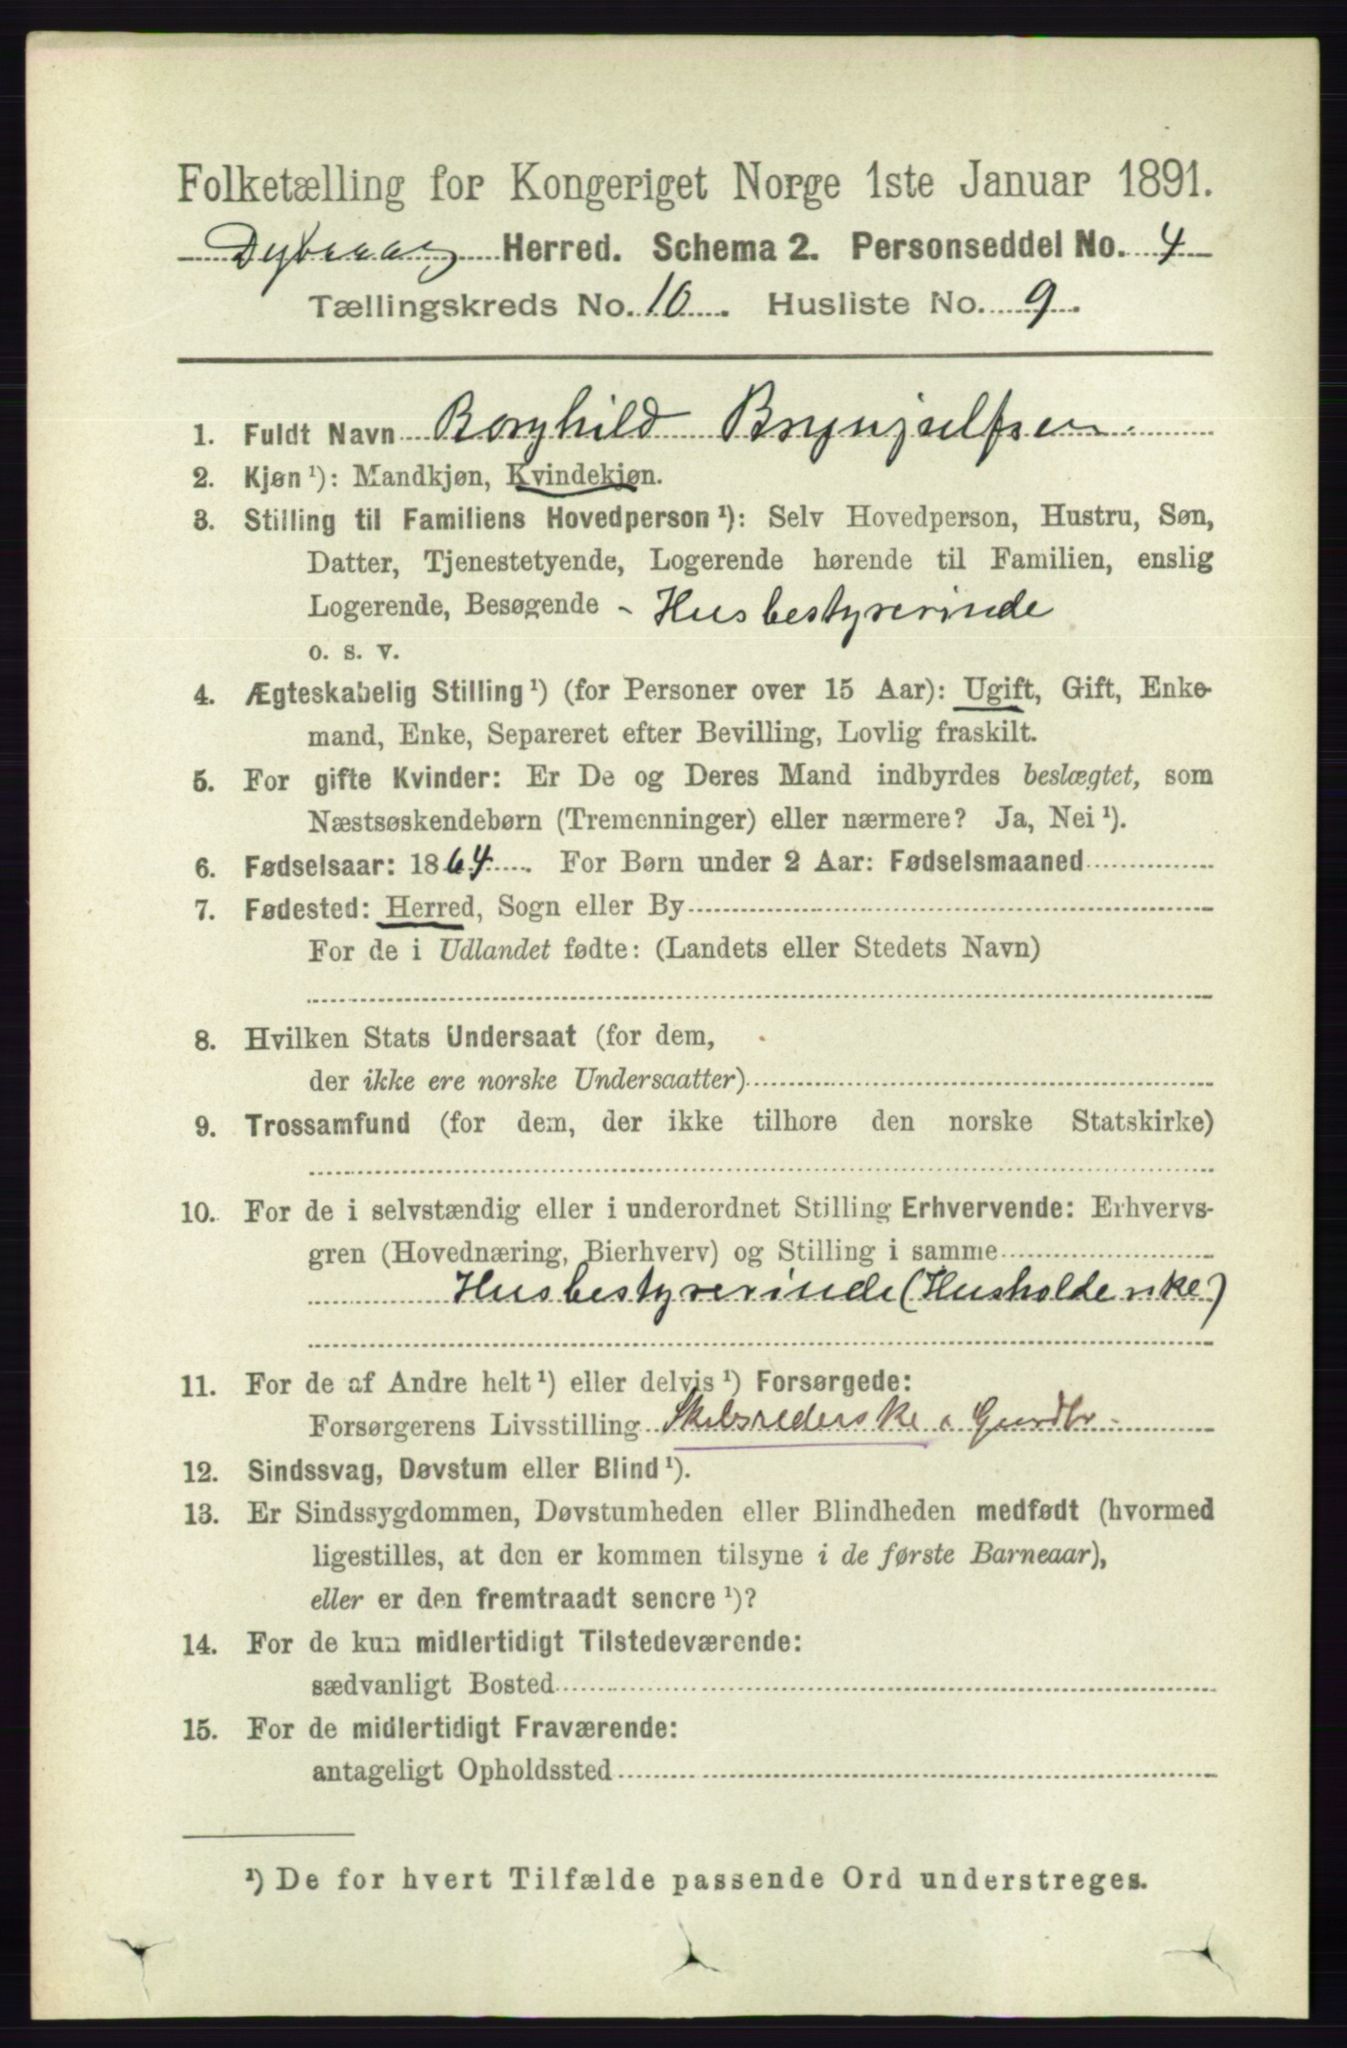 Folketælling for Kongeriget Norge 1ste Januar 1891.
Dybvaag Herred. Schema 2. Personseddel No. 4
Tællingskreds No. 10. Husliste No. 9.
1. Fuldt Navn Borghild Brynjulfsen.
2. Kjøn ¹): Mandkjøn, Kvindekjøn.
3. Stilling til Familiens Hovedperson ¹): Selv Hovedperson, Hustru, Søn,
Datter, Tjenestetyende, Logerende hørende til Familien, enslig
Logerende, Besøgende - Husbestyrerinde
o. s. v.
4. Ægteskabelig Stilling ¹) (for Personer over 15 Aar): Ugift, Gift, Enke-
mand, Enke, Separeret efter Bevilling, Lovlig fraskilt.
5. For gifte Kvinder: Er De og Deres Mand indbyrdes beslægtet, som
Næstsøskendebørn (Tremenninger) eller nærmere? Ja, Nei ¹).
6. Fødselsaar: 1864. For Børn under 2 Aar: Fødselsmaaned
7. Fødested: Herred, Sogn eller By
For de i Udlandet fødte: (Landets eller Stedets Navn)
8. Hvilken Stats Undersaat (for dem,
der ikke ere norske Undersaatter)
9. Trossamfund (for dem, der ikke tilhøre den norske Statskirke)
10. For de i selvstændig eller i underordnet Stilling Erhvervende: Erhvervs-
gren (Hovednæring, Bierhverv) og Stilling i samme
Husbestyrerinde (Husholderske)
11. For de af Andre helt ¹) eller delvis ¹) Forsørgede:
Forsørgerens Livsstilling Skibsrederske
12. Sindssvag, Døvstum eller Blind ¹).
13. Er Sindssygdommen, Døvstumheden eller Blindheden medfødt (hvormed
ligestilles, at den er kommen tilsyne i de første Barneaar),
eller er den fremtraadt senere ¹)?
14. For de kun midlertidigt Tilstedeværende:
sædvanligt Bosted
15. For de midlertidigt Fraværende:
antageligt Opholdssted
¹) De for hvert Tilfælde passende Ord understreges.